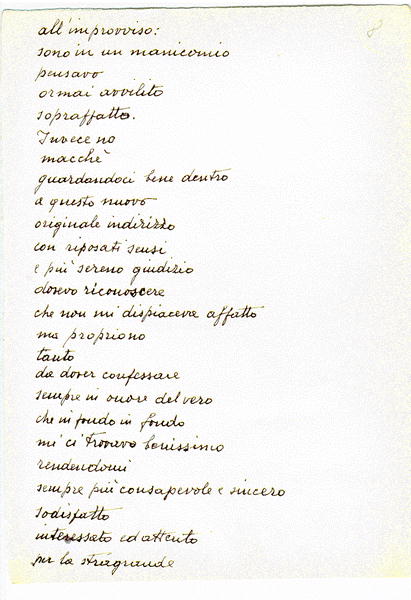 8
all'improvviso:
sono in un manicomio
pensavo
ormai avvilito
sopraffatto.
Invece no
macchè
guardandoci bene dentro
a questo nuovo
originale indirizzo
con riposati sensi
e più sereno giudizio
dovevo riconoscere
che non mi dispiaceva affatto
ma proprio no
tanto
da dover confessare
sempre in onore del vero
che in fondo in fondo
mi ci trovavo benissimo
rendendomi
sempre più consapevole e sincero
sodisfatto
interessato ed attento
per la stragrande